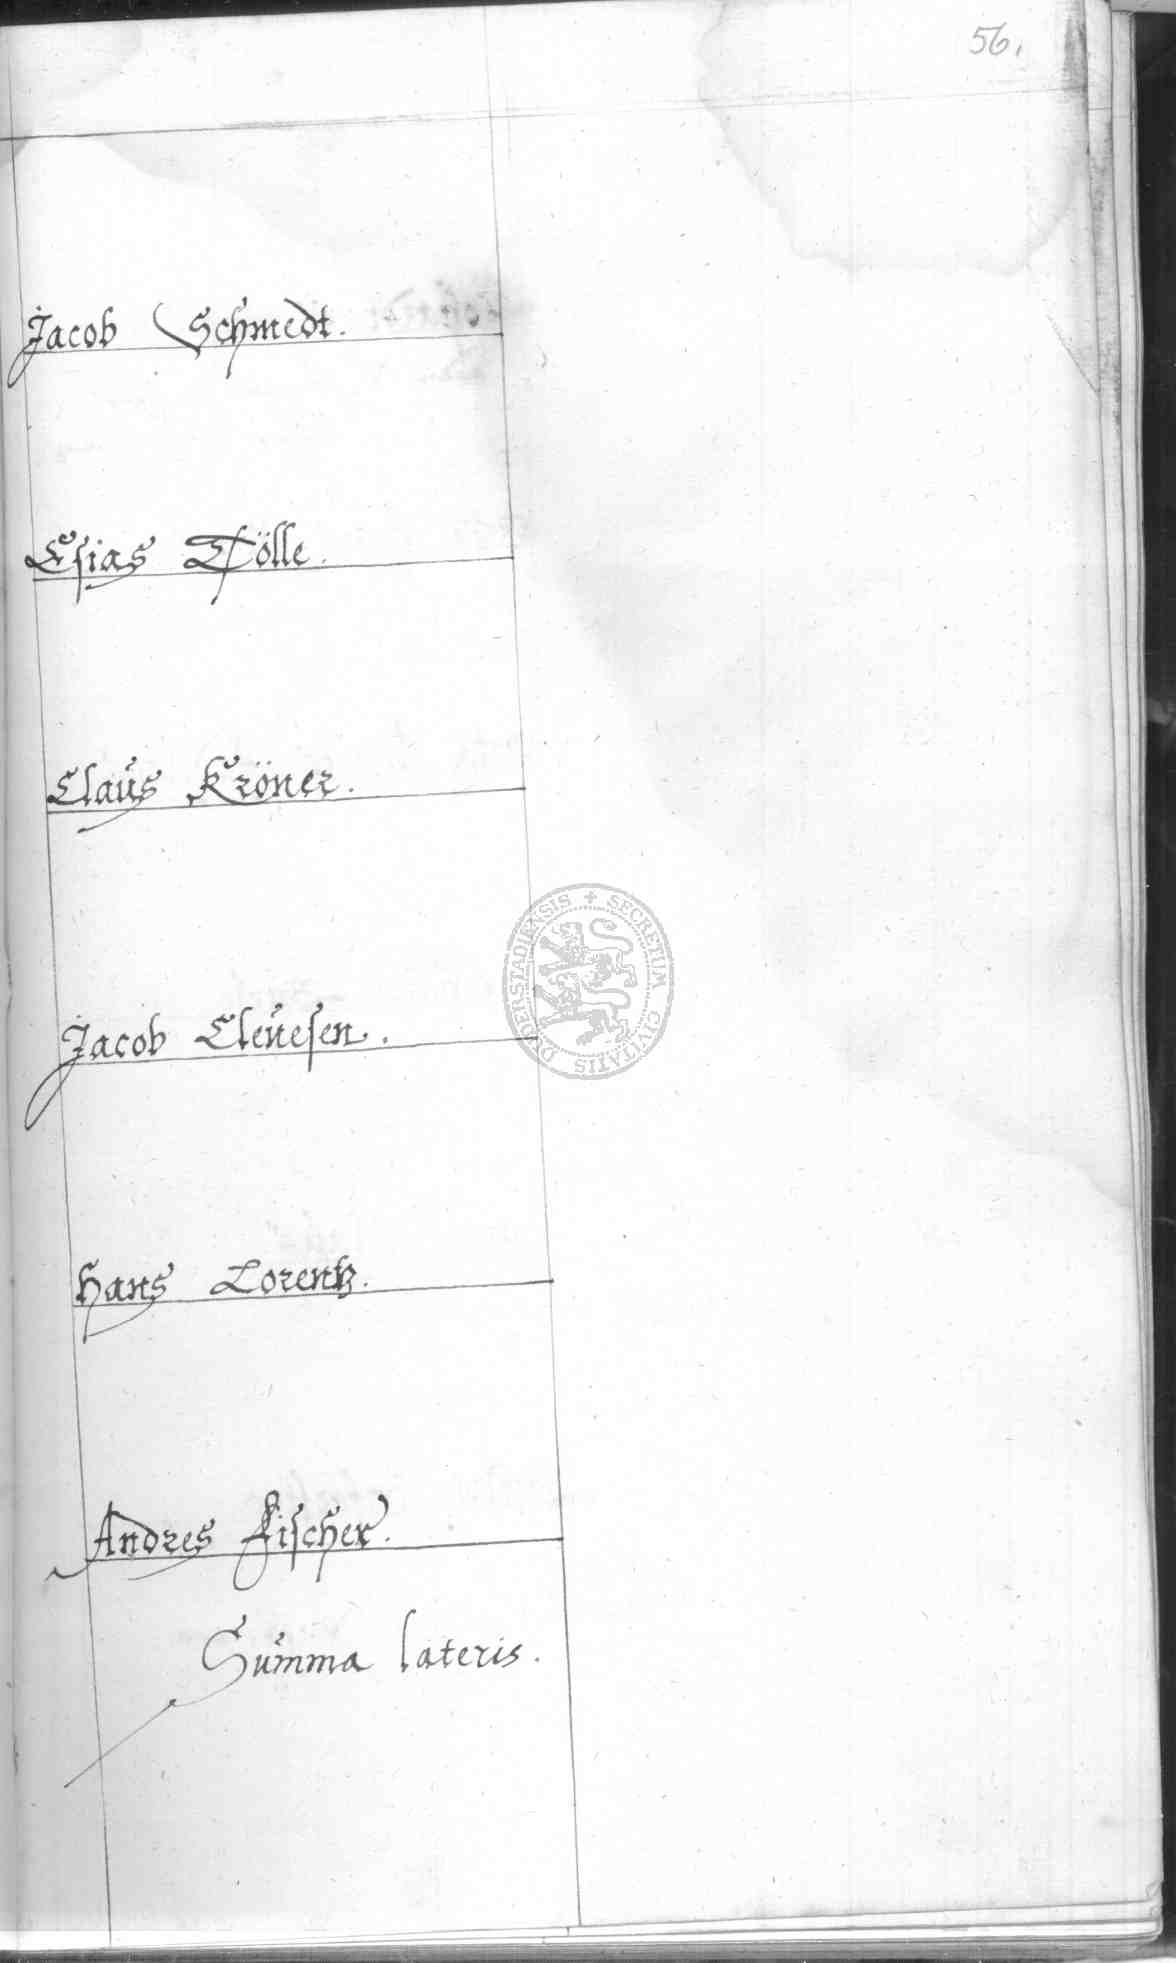 56.
Jacob Schmedt.
Esias Tölle.
Claus Kröner.
Jacob Cleuesen.
Hans Lorentz.
Andres Fischer.
Summa lateris.
SECRETUM CIVITATIS DUDERSTADIENSIS +